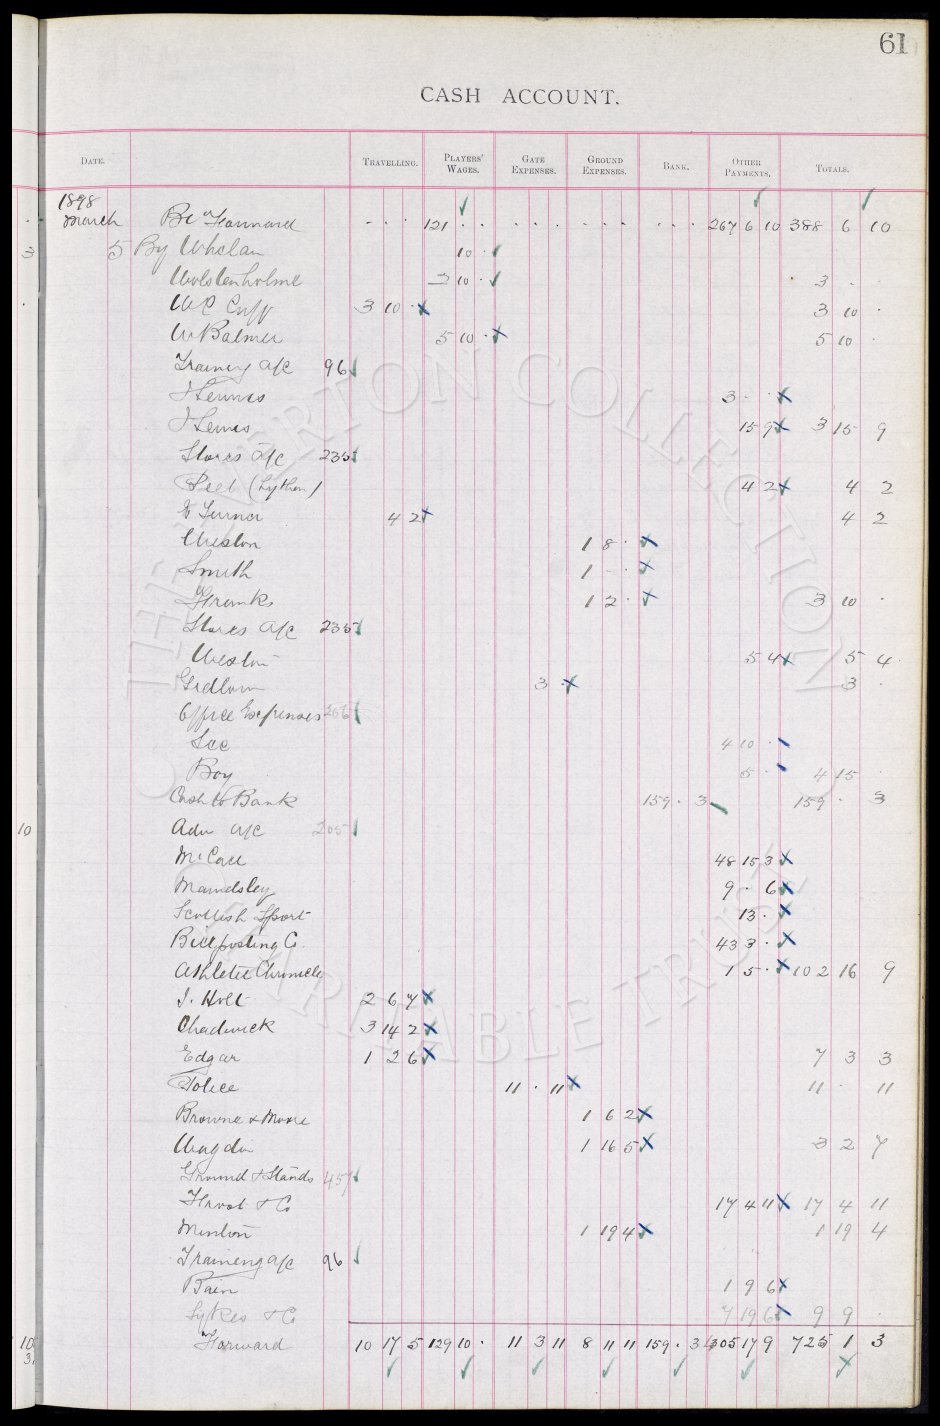 61
CASH ACCOUNT.
DATE. TRAVELLING. PLAYERS' WAGES. GATE EXPENSES. GROUND EXPENSES. BANK. OTHER PAYMENTS. TOTALS.
1898
March Bt Forward 121 . . 267 6 10 388 6 10
5 By Whelan 10 .
Wolstenholme 2 10 . 3 . .
W C Cuff 3 10 . 3 10 .
W Balmer 5 10 . 5 10 .
Training a/c 96
3 - .
J Lewis 15 9 3 15 9
Stores a/c 235
Peel (Lytham) 4 2 4 2
E Turner 4 2 4 2
Weston 1 8 .
Smith 1 - .
Franks 1 2 . 3 10 .
Stores a/c 235
Weston 5 4 5 4
Gidlow 3 . 3 .
Office Expenses 206
Lee 4 10 .
Boy 5 . 4 15 .
Cash to Bank 159 . 3 159 . 3
Adv a/c 205
McCall 48 15 3
Mawdsley 9 . 6
Scottish Sport 13 .
Billposting Co. 43 3 .
Athletic Chronicle 1 5 . 102 16 9
J. Holt 2 6 7
Chadwick 3 14 2
Edgar 1 2 6 7 3 3
Police 11 . 11 11 . 11
Browne & Moore 1 6 2
1 16 5 3 2 7
Ground & Stands 457
17 4 11 17 4 11
Minton 1 19 4 1 19 4
Training a/c 96
Bain 1 9 6
Sykes & Co 7 19 6 9 9 .
Forward 10 17 5 129 10 . 11 3 11 8 11 11 159 . 3 405 17 9 725 1 3
THE EVERTON COLLECTION
CHARITABLE TRUST
3
10
10
3